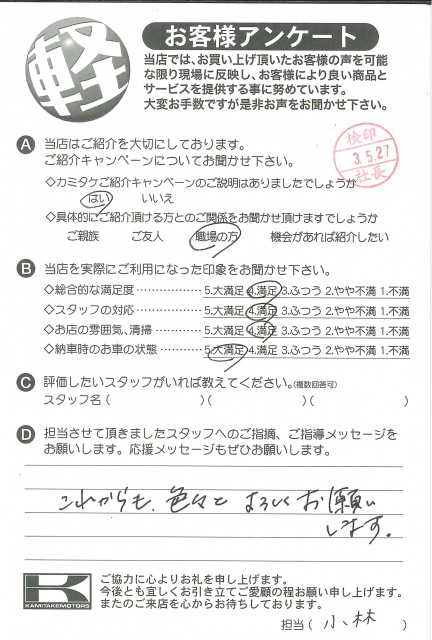 軽
お客様アンケート
当店では、お買い上げ頂いたお客様の声を可能
な限り現場に反映し、お客様により良い商品と
サービスを提供する事に努めています。
大変お手数ですが是非お声をお聞かせ下さい。
検印
3.5.27
社長
A 当店はご紹介を大切にしております。
ご紹介キャンペーンについてお聞かせ下さい。
◇カミタケご紹介キャンペーンのご説明はありましたでしょうか
はい いいえ
◇具体的にご紹介頂ける方とのご関係をお聞かせ頂けますでしょうか
ご親族 ご友人 職場の方 機会があれば紹介したい
B 当店を実際にご利用になった印象をお聞かせ下さい。
◇総合的な満足度………… 5.大満足 4.満足 3.ふつう 2.やや不満 1.不満
◇スタッフの対応………… 5.大満足 4.満足 3.ふつう 2.やや不満 1.不満
◇お店の雰囲気、清掃…… 5.大満足 4.満足 3.ふつう 2.やや不満 1.不満
◇納車時のお車の状態…… 5.大満足 4.満足 3.ふつう 2.やや不満 1.不満
C 評価したいスタッフがいれば教えてください。(複数回答可)
スタッフ名( )( )( )
D 担当させて頂きましたスタッフへのご指摘、ご指導メッセージを
お願いします。応援メッセージもぜひお願いします。
これからも、色々と よろしくお願い
します。
K
KAMITAKEMOTORS
ご協力に心よりお礼を申し上げます。
今後とも宜しくお引き立てご愛顧の程お願い申し上げます。
またのご来店を心からお待ちしております。
担当(小林)